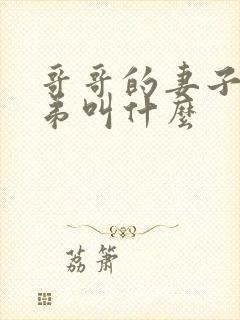 哥哥的妻子
弟叫什麽
荔箫